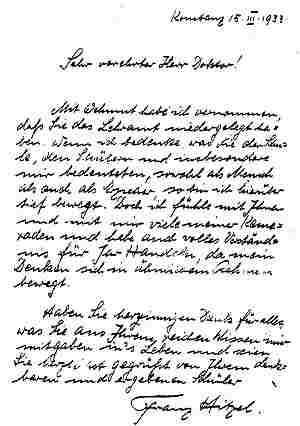 Konstanz 15. III. 1933
Sehr verehrter Herr Doktor!
Mit Wehmut habe ich vernommen,
daß Sie das Lehramt niedergelegt ha-
ben. Wenn ich bedenke was Sie der Schu-
le, den Schülern und insbesondere
mir bedeuteten, sowohl als Mensch
als auch als Erzieher so bin ich hierüber
tief bewegt. Doch ich fühle mit Ihnen
und mit mir viele meiner Kame-
raden und habe auch volles Verständ-
nis für Ihr Handeln, da mein
Denken sich in ähnlichem Rahmen
bewegt.
Haben Sie herzinnigen Dank für alles,
was Sie aus Ihrem reichen Wissen mir
mitgaben ins Leben und seien
Sie herzlichst gegrüßt von Ihrem dank-
baren und ergebenen Schüler
Franz Hitzel.